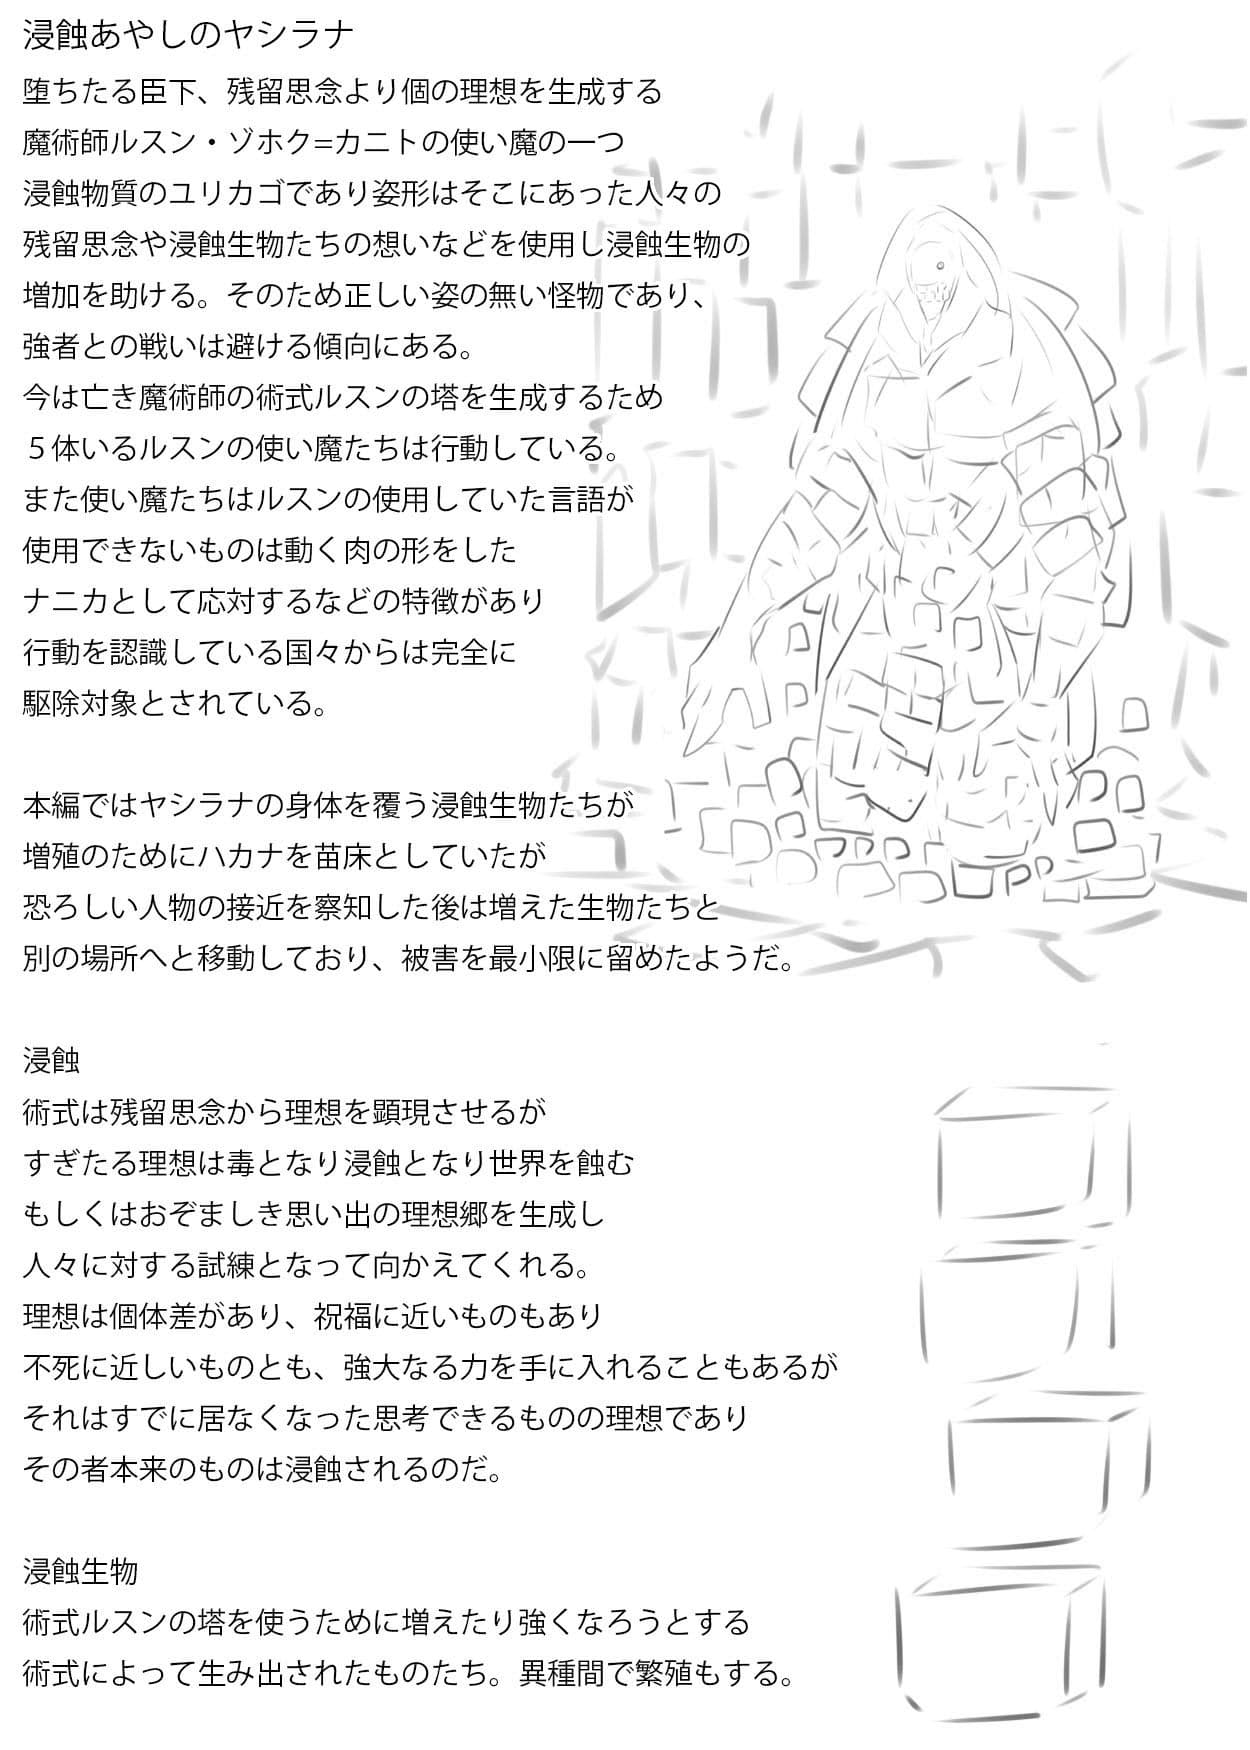 浸蝕あやしのヤシラナ
堕ちたる臣下、残留思念より個の理想を生成する
魔術師ルスン・ゾホク=カニトの使い魔の一つ
浸蝕物質のユリカゴであり姿形はそこにあった人々の
残留思念や浸蝕生物たちの想いなどを使用し浸蝕生物の
増加を助ける。そのため正しい姿の無い怪物であり、
強者との戦いは避ける傾向にある。
今は亡き魔術師の術式ルスンの塔を生成するため
５体いるルスンの使い魔たちは行動している。
また使い魔たちはルスンの使用していた言語が
使用できないものは動く肉の形をした
ナニカとして応対するなどの特徴があり
行動を認識している国々からは完全に
駆除対象とされている。
本編ではヤシラナの身体を覆う浸蝕生物たちが
増殖のためにハカナを苗床としていたが
恐ろしい人物の接近を察知した後は増えた生物たちと
別の場所へと移動しており、被害を最小限に留めたようだ。
浸蝕
術式は残留思念から理想を顕現させるが
すぎたる理想は毒となり浸蝕となり世界を蝕む
もしくはおぞましき思い出の理想郷を生成し
人々に対する試練となって向かえてくれる。
理想は個体差があり、祝福に近いものもあり
不死に近しいものとも、強大なる力を手に入れることもあるが
それはすでに居なくなった思考できるものの理想であり
その者本来のものは浸蝕されるのだ。
浸蝕生物
術式ルスンの塔を使うために増えたり強くなろうとする
術式によって生み出されたものたち。異種間で繁殖もする。